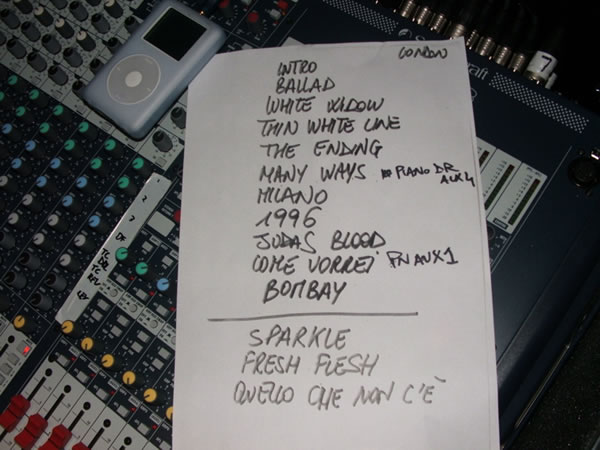 LONDON
INTRO
BALLAD
WHITE WIDOW
THIN WHITE LINE
THE ENDING
MANY WAYS PIANO DR
AUX 4
MILANO
1996
JUDAS BLOOD
COME VORREI PN AUX1
BOMBAY
SPARKLE
FRESH FLESH
QUELLO CHE NON C'È
7
Soundcraft